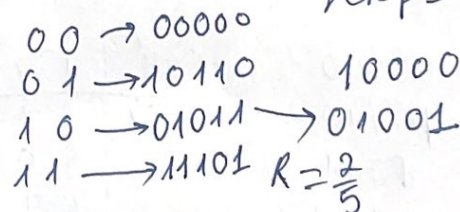 0 0 → 00000
0 1 → 10110 10000
1 0 → 01011 → 01001
1 1 → 11101 R = 2/5